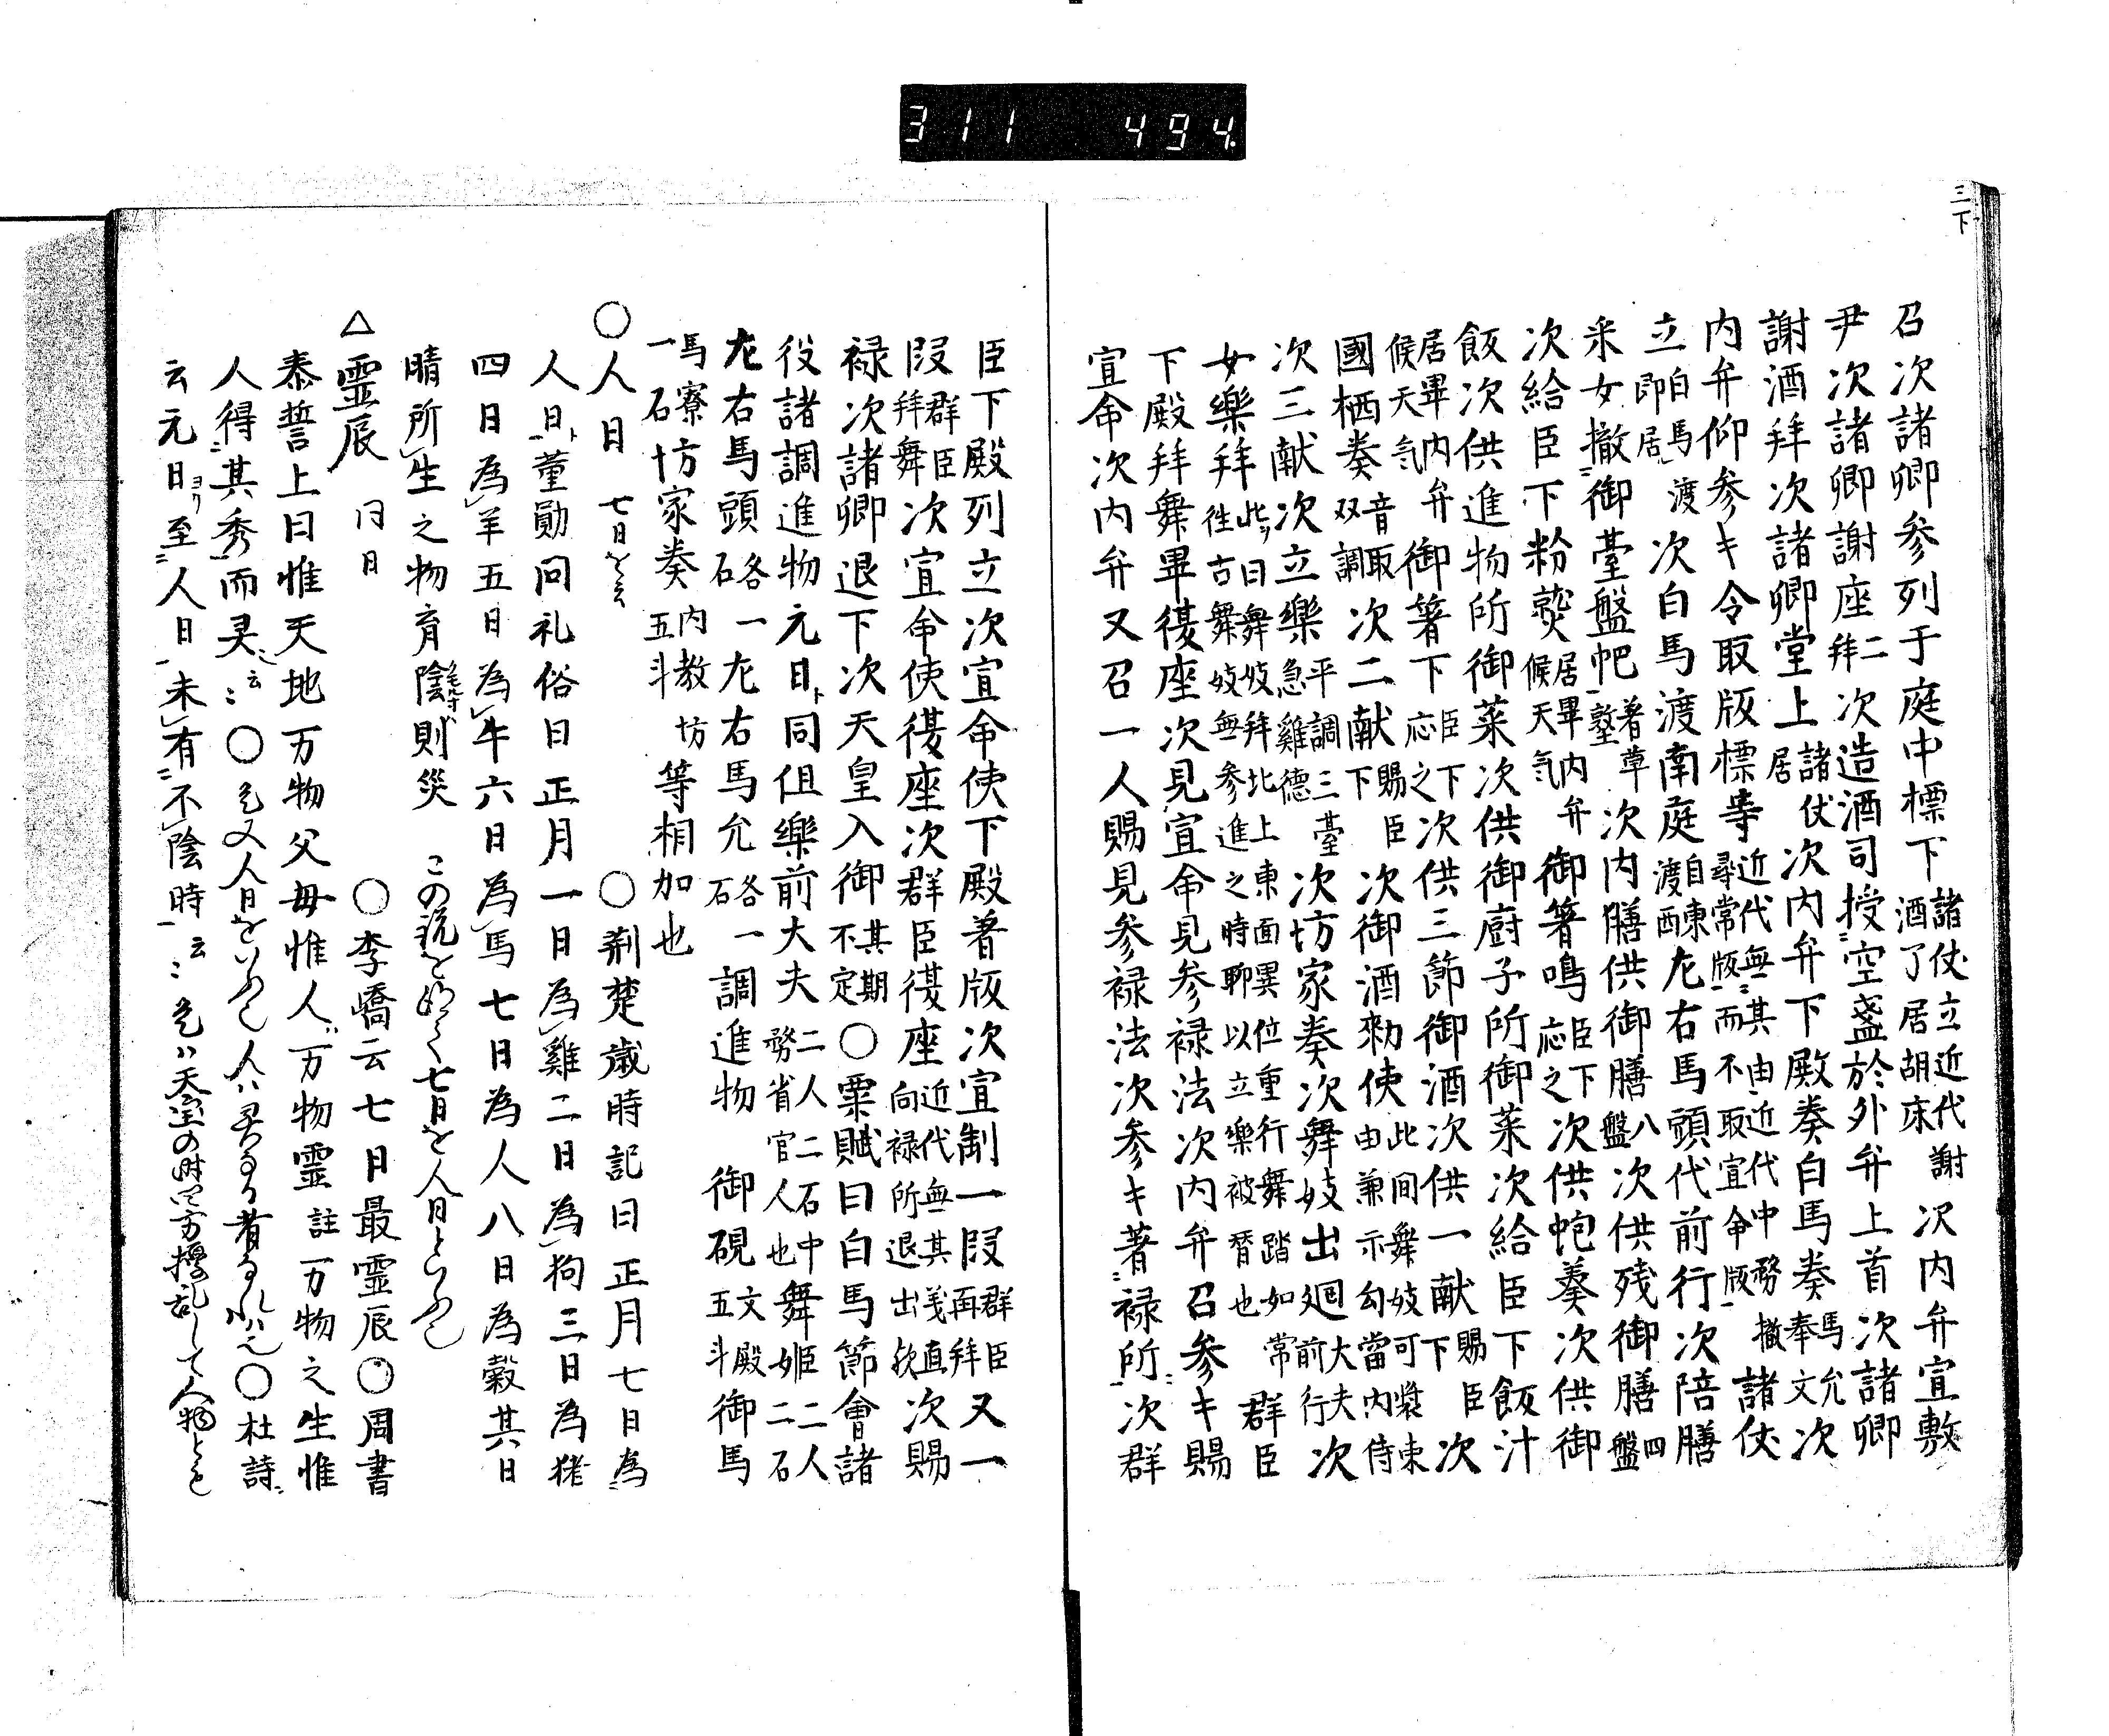 311 494
三下
召次諸卿参列于庭中標下諸仗立近代謝酒了居胡床次内弁宣敷
尹次諸卿謝座二拜次造酒司授空盞於外弁上首次諸卿
謝酒拜次諸卿堂上諸仗居次内弁下殿奏白馬奏馬允奉文次
内弁仰参キ令取版標等近代無其由近代中務尋常版而不取宣命版撤諸仗
立白馬渡即居次白馬渡南庭自東渡西左右馬頭代前行次陪膳
采女撤御臺盤帊著草墪次内膳供御膳八盤次供残御膳四盤
次給臣下粉熟居畢内弁候天気御箸鳴臣下応之次供鮑羹次供御
飯次供進物所御菜次供御厨子所御菜次給臣下飯汁
居畢内弁候天気御箸下臣下応之次供三節御酒次供一献賜臣下次
國栖奏音取双調次二献賜臣下次御酒勅使此間舞妓可裝束由兼示勾當内侍
次三献次立樂平調三臺急雞德次坊家奏次舞妓出廻大夫前行次
女樂拜此日舞妓拜北上東面異位重行舞踏如常往古舞妓無参進之時聊以立樂被替也群臣
下殿拜舞畢復座次見宣命見参禄法次内弁召参キ賜
宣命次内弁又召一人賜見参禄法次参キ著禄所次群
臣下殿列立次宣命使下殿著版次宣制一段群臣再拜又一
段群臣拜舞次宣命使復座次群臣復座近代無其義直向禄所退出歟次賜
禄次諸卿退下次天皇入御其期不定〇粟賦曰白馬節會諸
役諸調進物元日同但樂前大夫二人二石中務省官人也舞姬二人二石
左右馬頭各一石左右馬允各一石調進物御硯文殿五斗御馬
馬寮一石十坊家奏内教坊五斗等相加也
〇人日七日を云〇荊楚歳時記曰正月七日為
人日董勛問礼俗曰正月一日為雞二日為狗三日為猪
四日為羊五日為牛六日為馬七日為人八日為穀其日
晴所生之物育陰則災この説を七日を人日と
△霊辰同日〇李嶠云七日最霊辰〇周書
泰誓上曰惟天地万物父母惟人万物霊註万物之生惟
人得其秀而灵云〻〇又人日を人ハ者〇杜詩
云元日ヨリ至人日未有不陰時云〻ハ天宝の時四方擾乱して人物とも